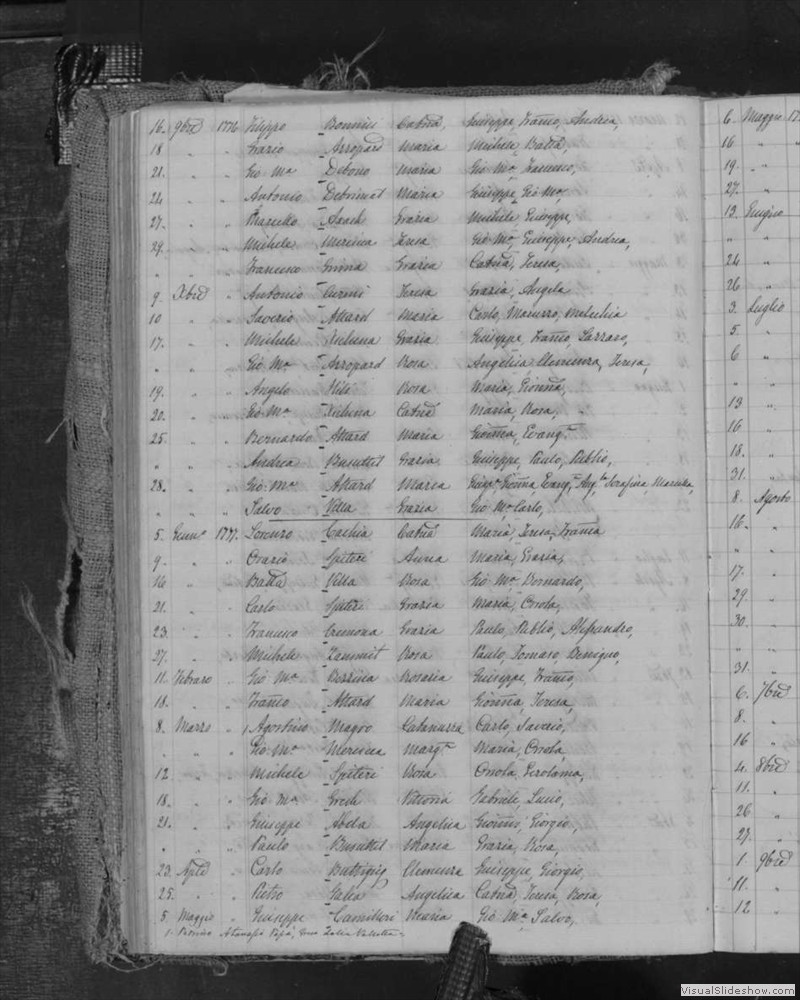 16. 9bre 1776 Filippo Bonnici Catna, Giuseppe, Franco, Andrea,
18 " " Grazio Arropard Maria Michele, Batta,
21. " " Gio Ma Debono Maria Gio Ma, Francesco,
24 " " Antonio Debrincat Maria Giuseppe, Gio Ma,
27. " " Marcello Grazia Michele, Giuseppe,
29. " " Michele Mercieca Teresa Gio Ma, Giuseppe, Andrea,
" " " Francesco Grima Grazia Catna, Teresa,
9. Xbre " Antonio Curmi Teresa Grazia, Angela
10 " " Saverio Attard Maria Carlo, Maruzzo,
17. " " Michele Xicluna Grazia Giuseppe, Franco, Lazzaro,
" " " Gio Ma Arropard Rosa Angelica, Clemenza, Teresa,
19. " " Angelo Rosa Maria, Gionna,
20. " " Gio Ma Xicluna Catna Maria, Rosa,
25. " " Bernardo Attard Maria Gionna, Evanga
" " " Andrea Busuttil Grazia Giuseppe, Paulo, Publio,
28. " " Gio Ma Attard Maria Gionna, Evanga, Serafina, Maruzza,
" " " Salvo Vella Grazia Gio Ma, Carlo,
5. Gennro 1777. Lorenzo Cachia Catna Maria, Teresa, Franca
9. " " Orazio Spiteri Anna Maria, Grazia,
16 " " Batta Vella Rosa Gio Ma, Bernardo,
21. " " Carlo Spiteri Grazia Maria, Orsola,
23. " " Francesco Cremona Grazia Paulo, Publio, Alessandro,
27. " " Michele Zammit Rosa Paulo, Tomaso, Benigno,
11. Febraro " Gio Ma Rosaria Giuseppe, Franco,
18. " " Franco Attard Maria Gionna, Teresa,
8. Marzo " Agostino Magro Catanuzza Carlo, Saverio,
" " " Gio Ma Mercieca Marga Maria, Orsola,
12 " " Michele Spiteri Rosa Orsola, Gerolama,
18. " " Gio Ma Grech Vittoria Gabriele, Lucio,
21. " " Giuseppe Abela Angelica Gionni, Giorgio,
" " " Paulo Busuttil Maria Grazia, Rosa,
23. Aple " Carlo Buttigieg Clemenza Giuseppe, Giorgio,
25. " " Pietro Galea Angelica Catna, Teresa, Rosa,
5 Maggio " Giuseppe Camilleri Maria Gio Ma, Salvo,
6. Maggio 17
16 " "
19. "
27. "
13. Giugno
" "
24 "
26 "
3. Luglio
5. "
6 "
" "
13 "
16 "
18. "
31. "
8. Agosto
16. "
" "
17. "
29. "
30. "
" "
31. "
6. 7bre
8. "
16 "
4. 8bre
11. "
26 "
27. "
1. 9bre
11. "
12 "
VisualSlideshow.com